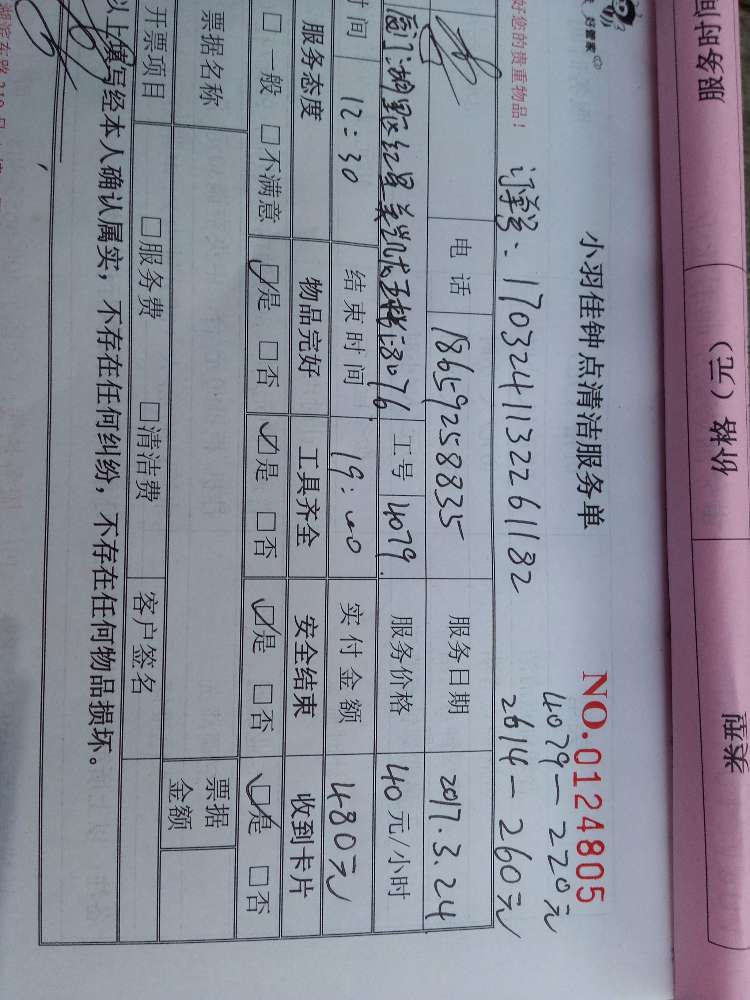 服务时间 价格（元） 类型
好管家
好您的贵重物品！
小羽佳钟点清洁服务单
NO.0124805
4079—220元
订单号：1703241132261182 2614—260元
电话 18659258835 服务日期 2017.3.24
厦门湖里区红星美凯龙 3076 工号 4079 服务价格 40元/小时
时间 12:30 结束时间 19:00 实付金额 480元
服务态度 物品完好 工具齐全 安全结束 收到卡片
□一般 □不满意 ☑是 □否 ☑是 □否 ☑是 □否 ☑是 □否
票据名称 票据金额
开票项目 □服务费 □清洁费 客户签名
以上填写经本人确认属实，不存在任何纠纷，不存在任何物品损坏。